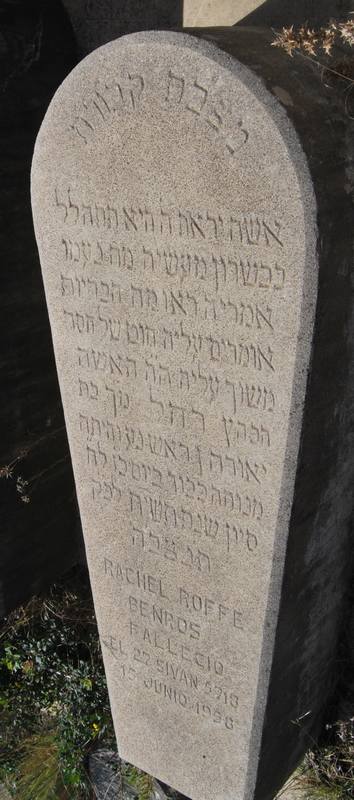 מצבת קבורת
אשה יראת ה היא תתהלל
בכשרון מעשיה מה נעמו
אמריה ראו מה הבריות
אומרים עליה חוט של חסד
משוך עליה הה האשה
רחל מך בת
יאורה ן ראש
מנוחתה כבוד ביום כז לח
סיון שנת תשיח לפק
תנצבה
RACHEL ROFFE
BENROS
FALLECIO
EL 27 SIVAN 5718
15 JUNIO 1958